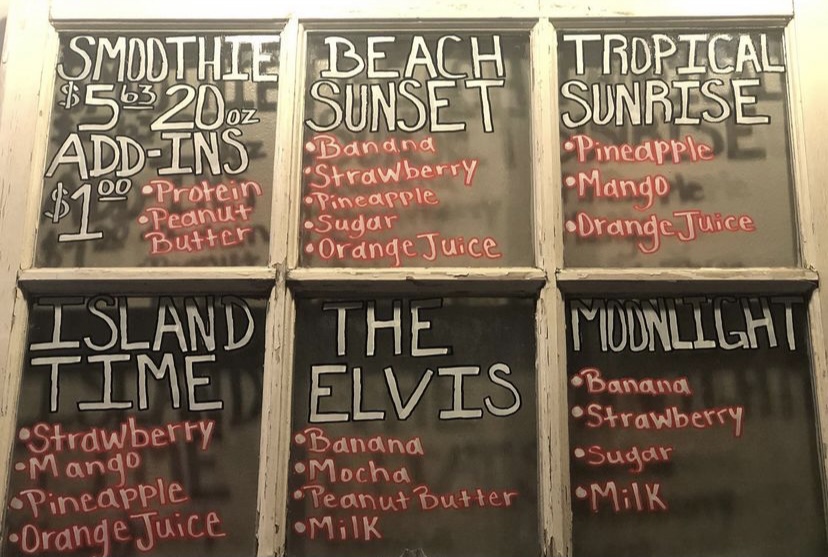 SMOOTHIE
$5.63 20oz
ADD-INS
$1.00 •Protein
•Peanut
Butter
BEACH
SUNSET
•Banana
•Strawberry
•Pineapple
•Sugar
•Orange Juice
TROPICAL
SUNRISE
•Pineapple
•Mango
•Orange Juice
ISLAND
TIME
•Strawberry
•Mango
•Pineapple
•Orange Juice
THE
ELVIS
•Banana
•Mocha
•Peanut Butter
•Milk
MOONLIGHT
•Banana
•Strawberry
•Sugar
•Milk